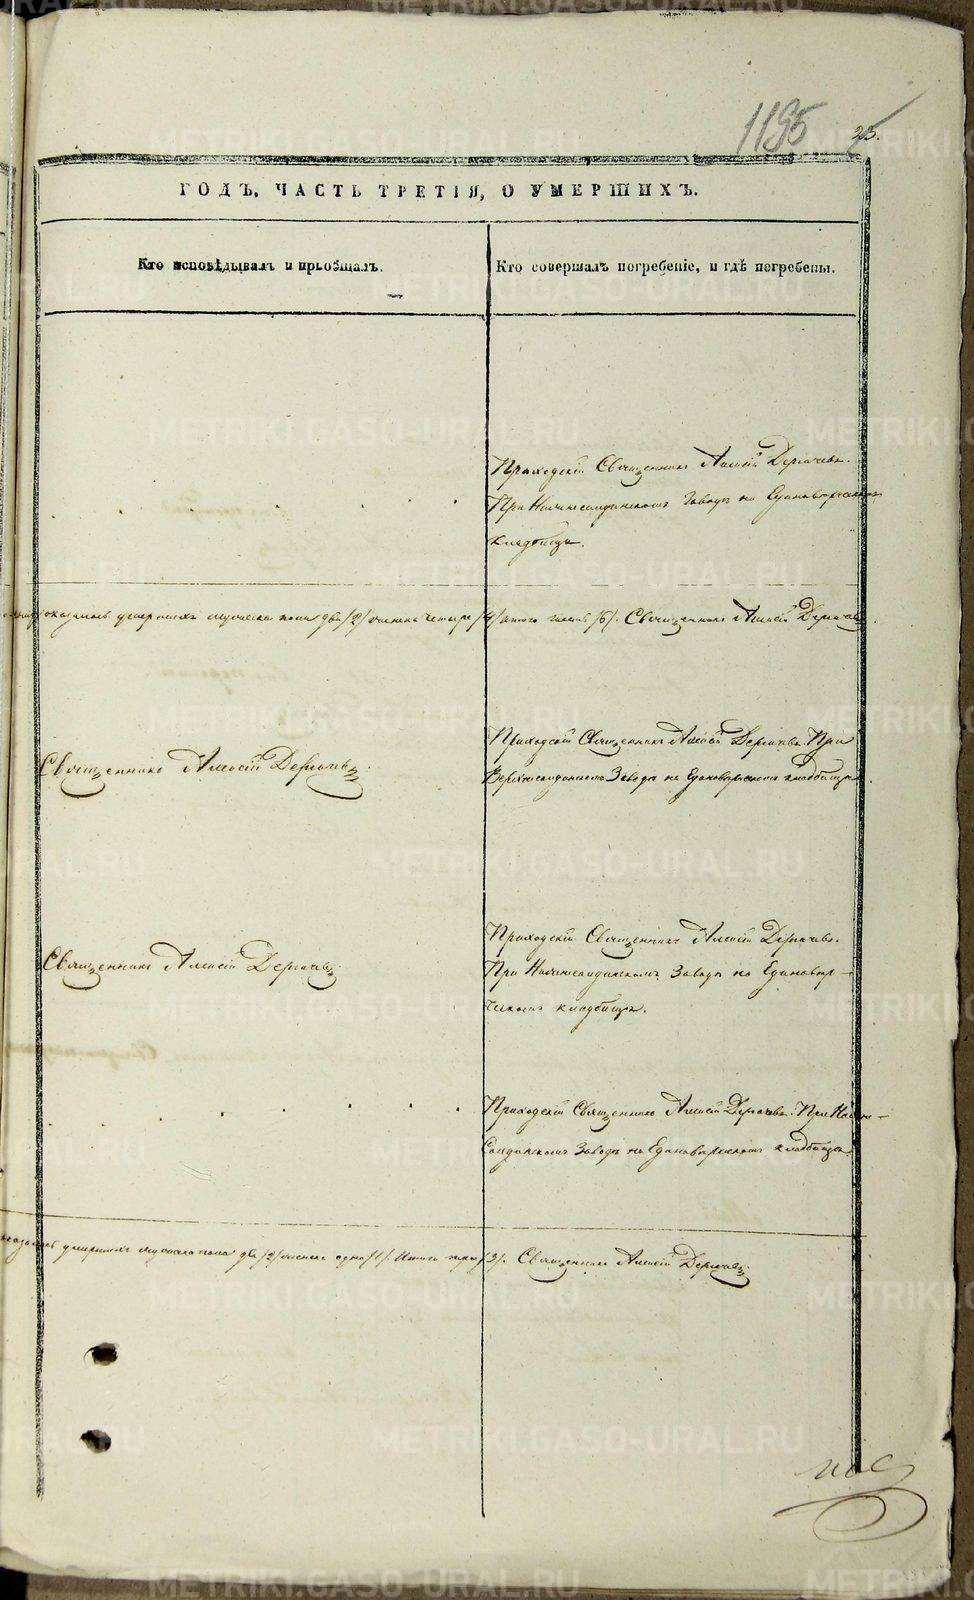 1195
25.
ГОДЪ, ЧАСТЬ ТРЕТІЯ, О УМЕРШИХЪ.
Кто исповѣдывалъ и пріобщалъ.
Кто совершалъ погребеніе, и гдѣ погребены.
Приходскій Священникъ Алексій Дерпачевъ.
При Нижнесалдинскомъ Заводѣ на Единовѣрческомъ
кладбищѣ.
оказалось умершихъ мужеска пола два /2/ женска четыре /4/ итого шесть /6/. Священникъ Алексій
Приходскій Священникъ Алексій При
Верхнесалдинскомъ Заводѣ на Единовѣрческомъ кладбищѣ.
Священникъ Алексій
Приходскій Священникъ Алексій
При Нижнесалдинскомъ Заводѣ на Единовѣр-
ческомъ кладбищѣ.
Священникъ Алексій
Приходскій Священникъ Алексій При Нижне-
Салдинскомъ Заводѣ на Единовѣрческомъ кладбищѣ.
оказалось умершихъ мужеска пола два /2/ женска одна /1/. Итого три /3/. Священникъ Алексій
METRIKI.GASO-URAL.RU